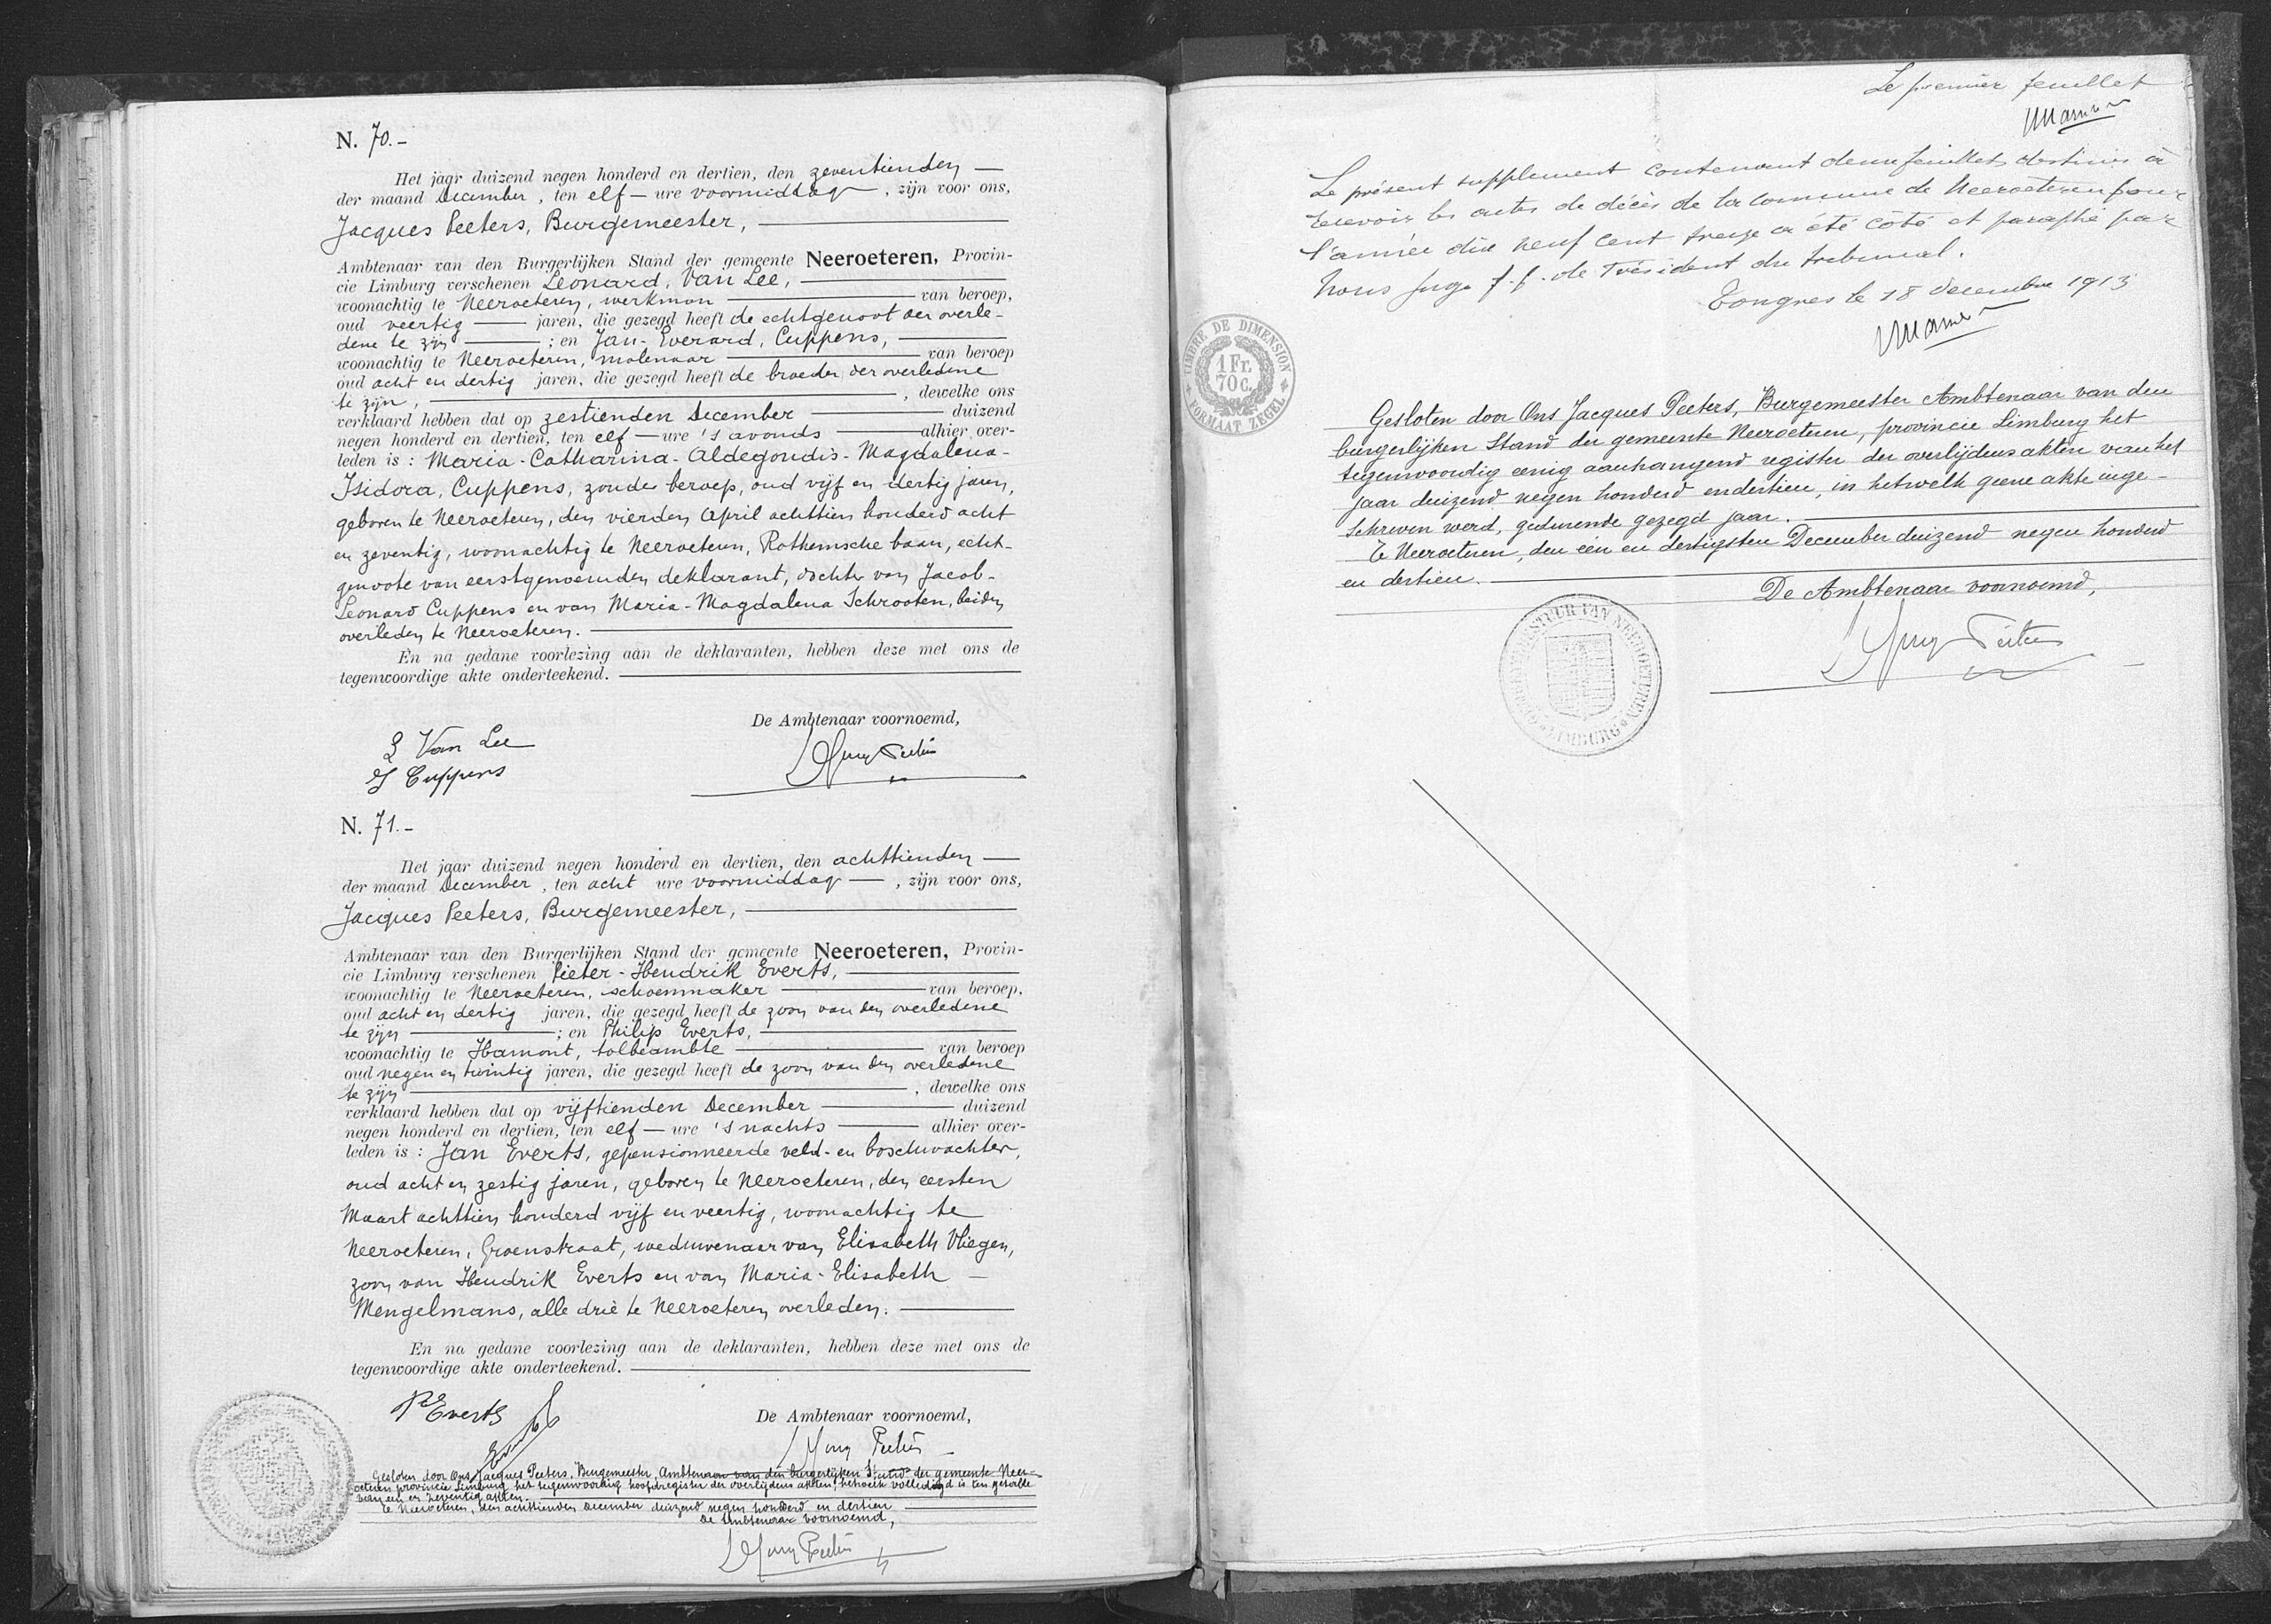 N. 70.-
Het jaar duizend negen honderd en dertien, den zeventienden
der maand December, ten elf ure voormiddag, zijn voor ons,
Jacques Peeters, Burgemeester,
Ambtenaar van den Burgerlijken Stand der gemeente Neeroeteren, Provin-
cie Limburg verschenen Leonard, Van Lee,
woonachtig te Neeroeteren, werkman van beroep,
oud veertig jaren, die gezegd heeft de echtgenoot der overle-
dene te zijn ; en Jan-Everard, Cuppens,
woonachtig te Neeroeteren, molenaar van beroep
oud acht en dertig jaren, die gezegd heeft de broeder der overledene
te zijn, , dewelke ons
verklaard hebben dat op zestienden December duizend
negen honderd en dertien, ten elf ure 's avonds alhier over-
leden is : Maria-Catharina-Aldegondis-Magdalena-
Isidora, Cuppens, zonder beroep, oud vijf en dertig jaren,
geboren te Neeroeteren, den vierden April achttien honderd acht
en zeventig, woonachtig te Neeroeteren, Rothemsche baan, echt-
genoote van eerstgenoemden deklarant, dochter van Jacob-
Leonard Cuppens en van Maria-Magdalena Schrooten, beiden
overleden te Neeroeteren.
En na gedane voorlezing aan de deklaranten, hebben deze met ons de
tegenwoordige akte onderteekend.
De Ambtenaar voornoemd,
L Van Lee
J Cuppens
N. 71.-
Het jaar duizend negen honderd en dertien, den achttienden
der maand December, ten acht ure voormiddag, zijn voor ons,
Jacques Peeters, Burgemeester,
Ambtenaar van den Burgerlijken Stand der gemeente Neeroeteren, Provin-
cie Limburg verschenen Pieter-Hendrik Everts,
woonachtig te Neeroeteren, schoenmaker van beroep,
oud acht en dertig jaren, die gezegd heeft de zoon van den overledene
te zijn ; en Philip Everts,
woonachtig te Hamont, tolbeambte van beroep
oud negen en twintig jaren, die gezegd heeft de zoon van den overledene
te zijn , dewelke ons
verklaard hebben dat op vijftienden December duizend
negen honderd en dertien, ten elf ure 's nachts alhier over-
leden is : Jan Everts, gepensionneerde veld- en boschwachter,
oud acht en zestig jaren, geboren te Neeroeteren, den eersten
Maart achttien honderd vijf en veertig, woonachtig te
Neeroeteren, Groenstraat, weduwenaar van Elisabeth Vliegen,
zoon van Hendrik Everts en van Maria-Elisabeth
Mengelmans, alle drie te Neeroeteren overleden.
En na gedane voorlezing aan de deklaranten, hebben deze met ons de
tegenwoordige akte onderteekend.
De Ambtenaar voornoemd,
P Everts
Gesloten door Ons Jacques Peeters, Burgemeester, Ambtenaar van den burgerlijken Stand der gemeente Neer-
oeteren provincie Limburg het tegenwoordig hoofdregister der overlijdens akten, hetwelk volledigd is ten getalle
van een en zeventig akten.
Te Neeroeteren, den achttienden December duizend negen honderd en dertien
De Ambtenaar voornoemd,
Le premier feuillet
Le présent supplement contenant deux feuillets destinés à
recevoir les actes de décès de la commune de Neeroeteren pour
l'année dix neuf cent treize a été côté et paraphé par
Nous Juge f.f. de Président du tribunal.
Tongres le 18 decembre 1913
TIMBRE DE DIMENSION
1 Fr.
70 c.
FORMAAT ZEGEL
Gesloten door Ons Jacques Peeters, Burgemeester Ambtenaar van den
burgerlijken Stand der gemeente Neeroeteren, provincie Limburg het
tegenwoordig eenig aanhangend register der overlijdens akten van het
jaar duizend negen honderd en dertien, in hetwelk geene akte inge-
schreven werd, gedurende gezegd jaar.
Te Neeroeteren, den een en dertigsten December duizend negen honderd
en dertien.
De Ambtenaar voornoemd,
GEMEENTEBESTUUR VAN NEEROETEREN
LIMBURG